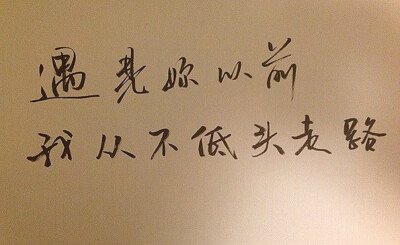 遇見妳以前
我从不低头走路